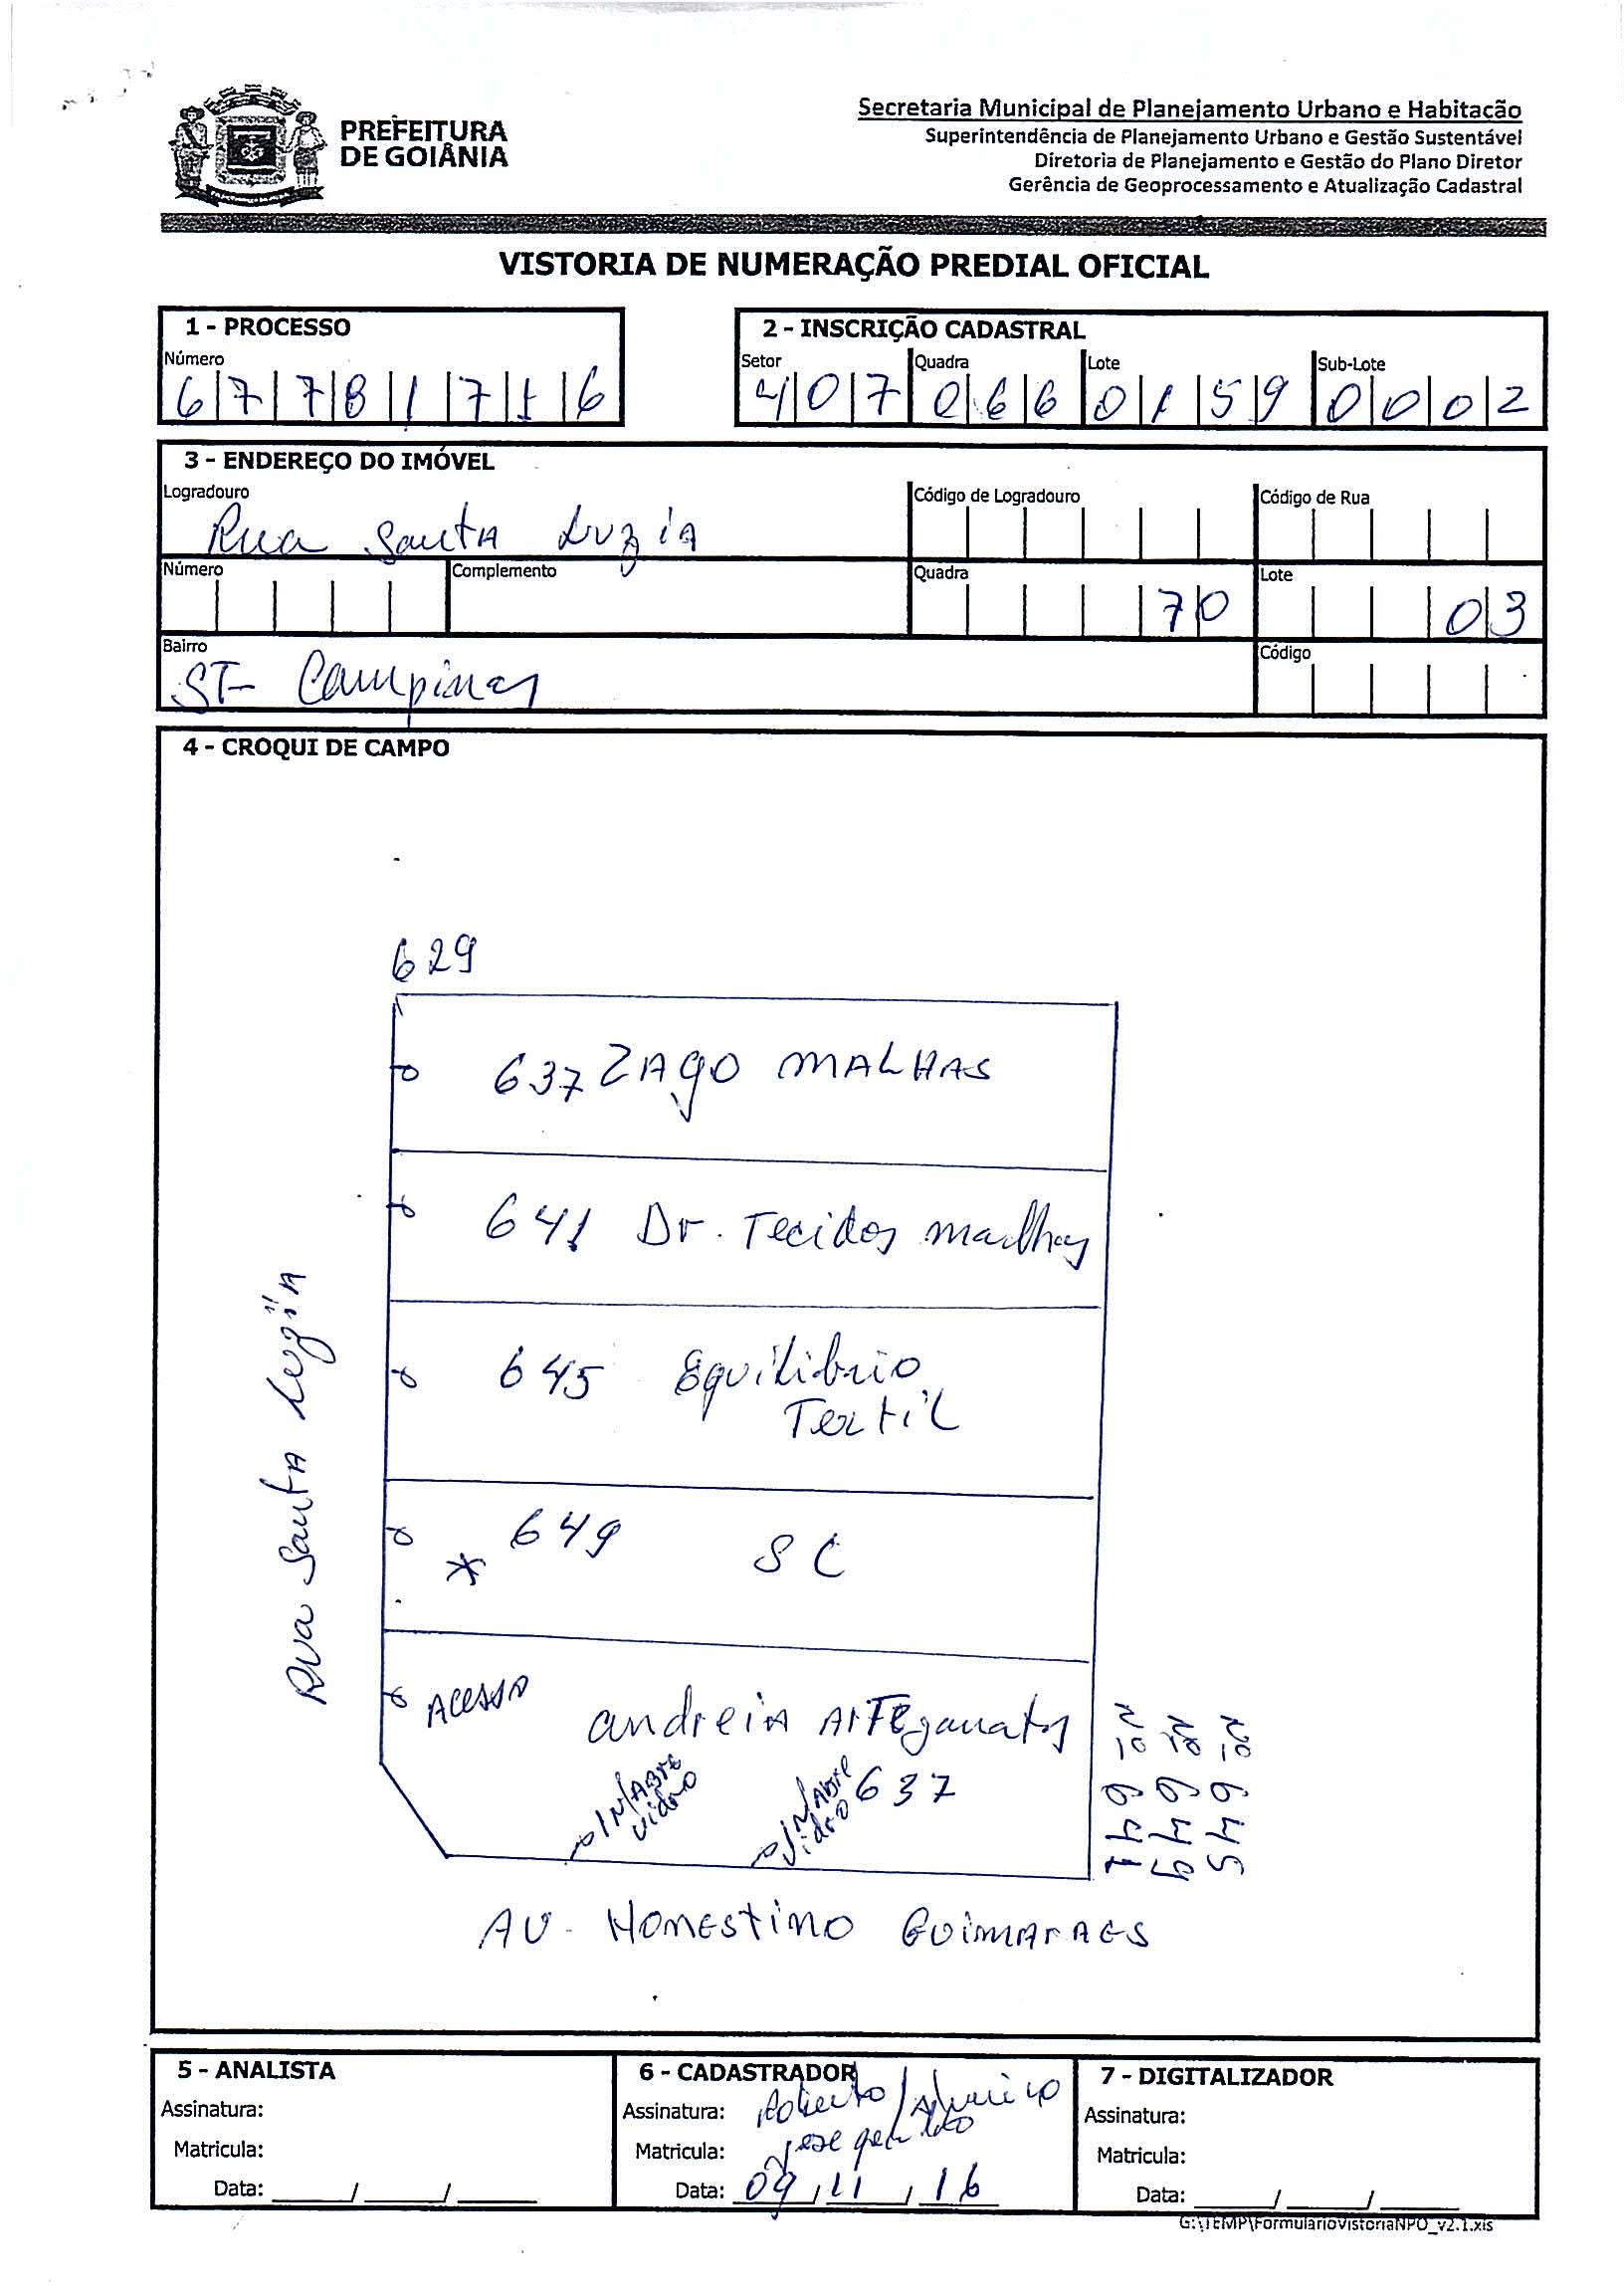 PREFEITURA
DE GOIÂNIA
Secretaria Municipal de Planejamento Urbano e Habitação
Superintendência de Planejamento Urbano e Gestão Sustentável
Diretoria de Planejamento e Gestão do Plano Diretor
Gerência de Geoprocessamento e Atualização Cadastral
VISTORIA DE NUMERAÇÃO PREDIAL OFICIAL
1 - PROCESSO
Número
6 7 7 8 1 7 1 6
2 - INSCRIÇÃO CADASTRAL
Setor Quadra Lote Sub-Lote
4 0 7 0 6 6 0 1 5 9 0 0 0 2
3 - ENDEREÇO DO IMÓVEL
Logradouro Código de Logradouro Código de Rua
Rua Santa Luzia
Número Complemento Quadra Lote
70 03
Bairro Código
ST- Campinas
4 - CROQUI DE CAMPO
629
637 ZAgO MALHAS
641 Dr. Tecidos malhas
645 Equilibrio
Textil
* 649 SC
Rua Santa Luzia
ACESSO
andreia ARTEzanatos
N/ABRE
vidro
N/ABRE
vidro
637
Nº 641
Nº 649
Nº 645
AV. HONESTINO GUIMARAES
5 - ANALISTA
Assinatura:
Matricula:
Data: ____/____/____
6 - CADASTRADOR
Assinatura: Roberto /
Matricula: jose geraldo
Data: 09/11/16
7 - DIGITALIZADOR
Assinatura:
Matricula:
Data: ____/____/____
G:\TEMP\FormularioVistoriaNPO_v2.1.xls